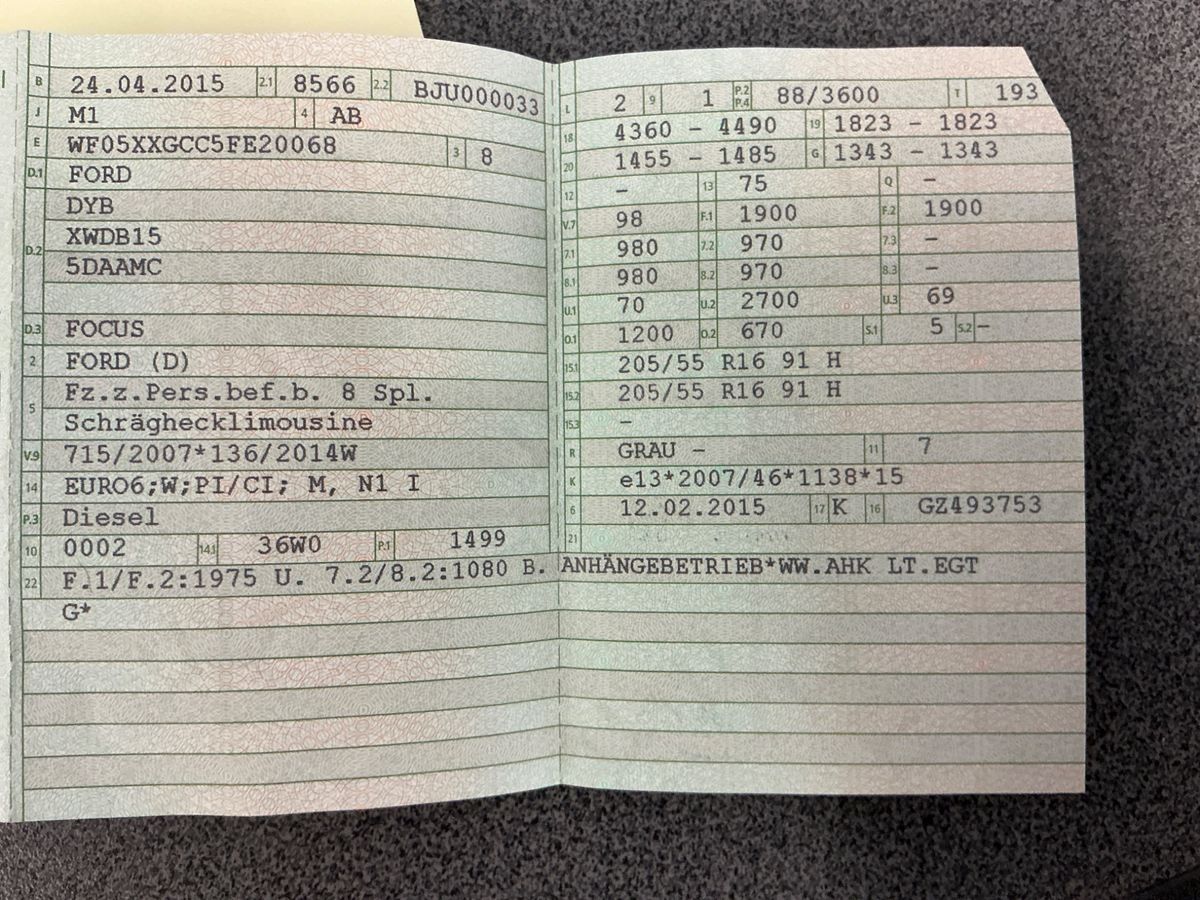 B 24.04.2015 2.1 8566 2.2 BJU000033
J M1 4 AB
E WF05XXGCC5FE20068 3 8
D.1 FORD
D.2 DYB
XWDB15
5DAAMC
D.3 FOCUS
2 FORD (D)
5 Fz.z.Pers.bef.b. 8 Spl.
Schräghecklimousine
V.9 715/2007*136/2014W
14 EURO6;W;PI/CI; M, N1 I
P.3 Diesel
10 0002 14.1 36W0 P.1 1499
L 2 9 1 P.2 P.4 88/3600 T 193
18 4360 - 4490 19 1823 - 1823
20 1455 - 1485 G 1343 - 1343
12 - 13 75 Q -
V.7 98 F.1 1900 F.2 1900
7.1 980 7.2 970 7.3 -
8.1 980 8.2 970 8.3 -
U.1 70 U.2 2700 U.3 69
O.1 1200 O.2 670 S.1 5 S.2 -
15.1 205/55 R16 91 H
15.2 205/55 R16 91 H
15.3 -
R GRAU - 11 7
K e13*2007/46*1138*15
6 12.02.2015 17 K 16 GZ493753
21
22 F.1/F.2:1975 U. 7.2/8.2:1080 B. ANHÄNGEBETRIEB*WW.AHK LT.EGT
G*